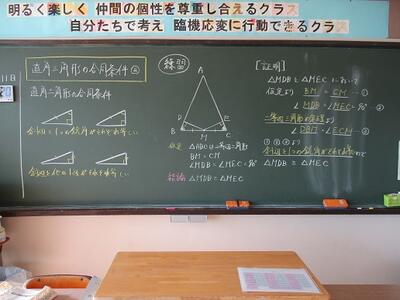 明るく楽しく 仲間の個性を尊重し合えるクラス
自分たちで考え 臨機応変に行動できるクラス
11日
直角三角形の合同条件②
直角三角形の合同条件
斜辺と1つの鋭角がそれぞれ等しい
斜辺と他の1辺がそれぞれ等しい
練習
A
D
E
B
M
C
仮定 △ABCは二等辺三角形
BM=CM
∠MDB=∠MEC=90°
結論 △MDB≡△MEC
[証明]
△MDBと△MECにおいて
仮定より BM = CM ―①
∠MDB=∠MEC=90° ②
二等辺三角形の より
∠DBM=∠ECM ―③
①②③より
斜辺と1つの鋭角がそれぞれ等しいので
△MDB≡△MEC